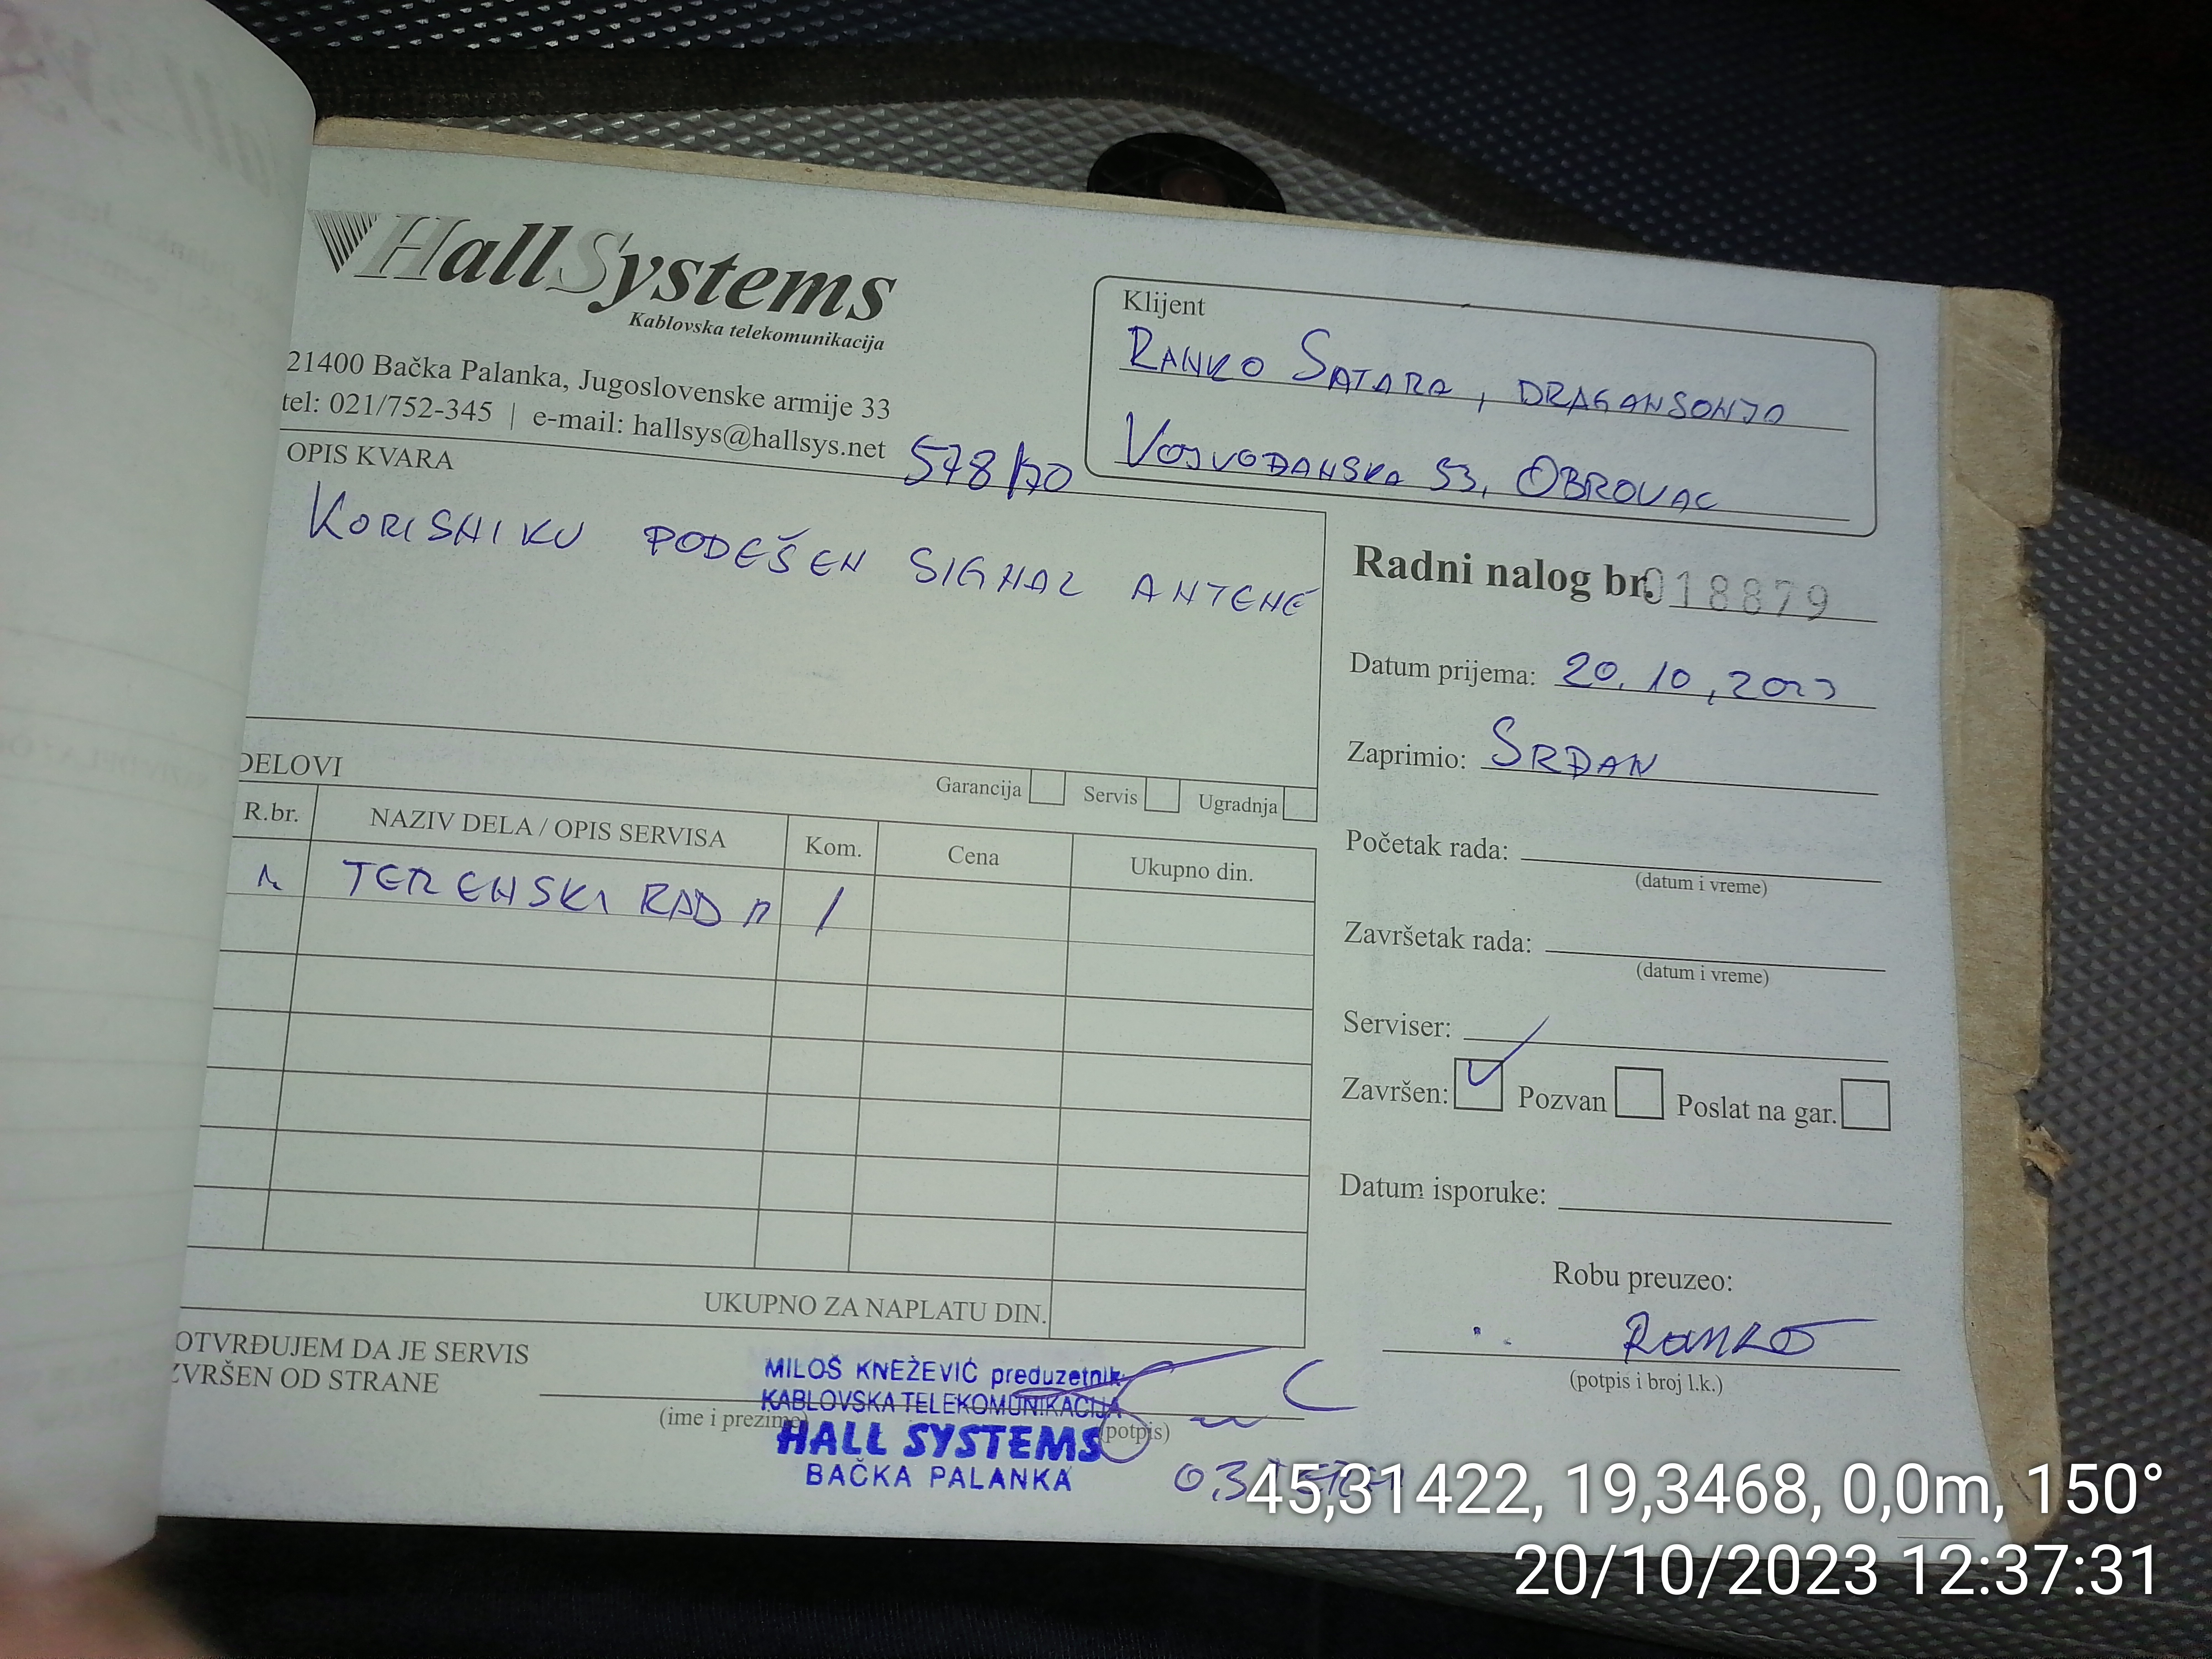 HallSystems
Kablovska telekomunikacija
21400 Bačka Palanka, Jugoslovenske armije 33
tel: 021/752-345 | e-mail: hallsys@hallsys.net
Klijent
RANKO SATARA, DRAGANSONJA
VOJVOĐANSKA 53, OBROVAC
OPIS KVARA
KORISNIKU PODEŠEN SIGNAL ANTENE
Radni nalog br. 018879
Datum prijema: 20.10,2023
Zaprimio: SRĐAN
DELOVI
Garancija Servis Ugradnja
R.br. NAZIV DELA / OPIS SERVISA Kom. Cena Ukupno din.
TERENSKI RAD /
Početak rada:
(datum i vreme)
Završetak rada:
(datum i vreme)
Serviser:
Završen: Pozvan Poslat na gar.
Datum isporuke:
UKUPNO ZA NAPLATU DIN.
Robu preuzeo:
RANKO
(potpis i broj l.k.)
OTVRĐUJEM DA JE SERVIS
ZVRŠEN OD STRANE
(ime i prezime)
(potpis)
MILOŠ KNEŽEVIĆ preduzetnik
KABLOVSKA TELEKOMUNIKACIJA
HALL SYSTEMS
BAČKA PALANKA
45,31422, 19,3468, 0,0m, 150°
20/10/2023 12:37:31